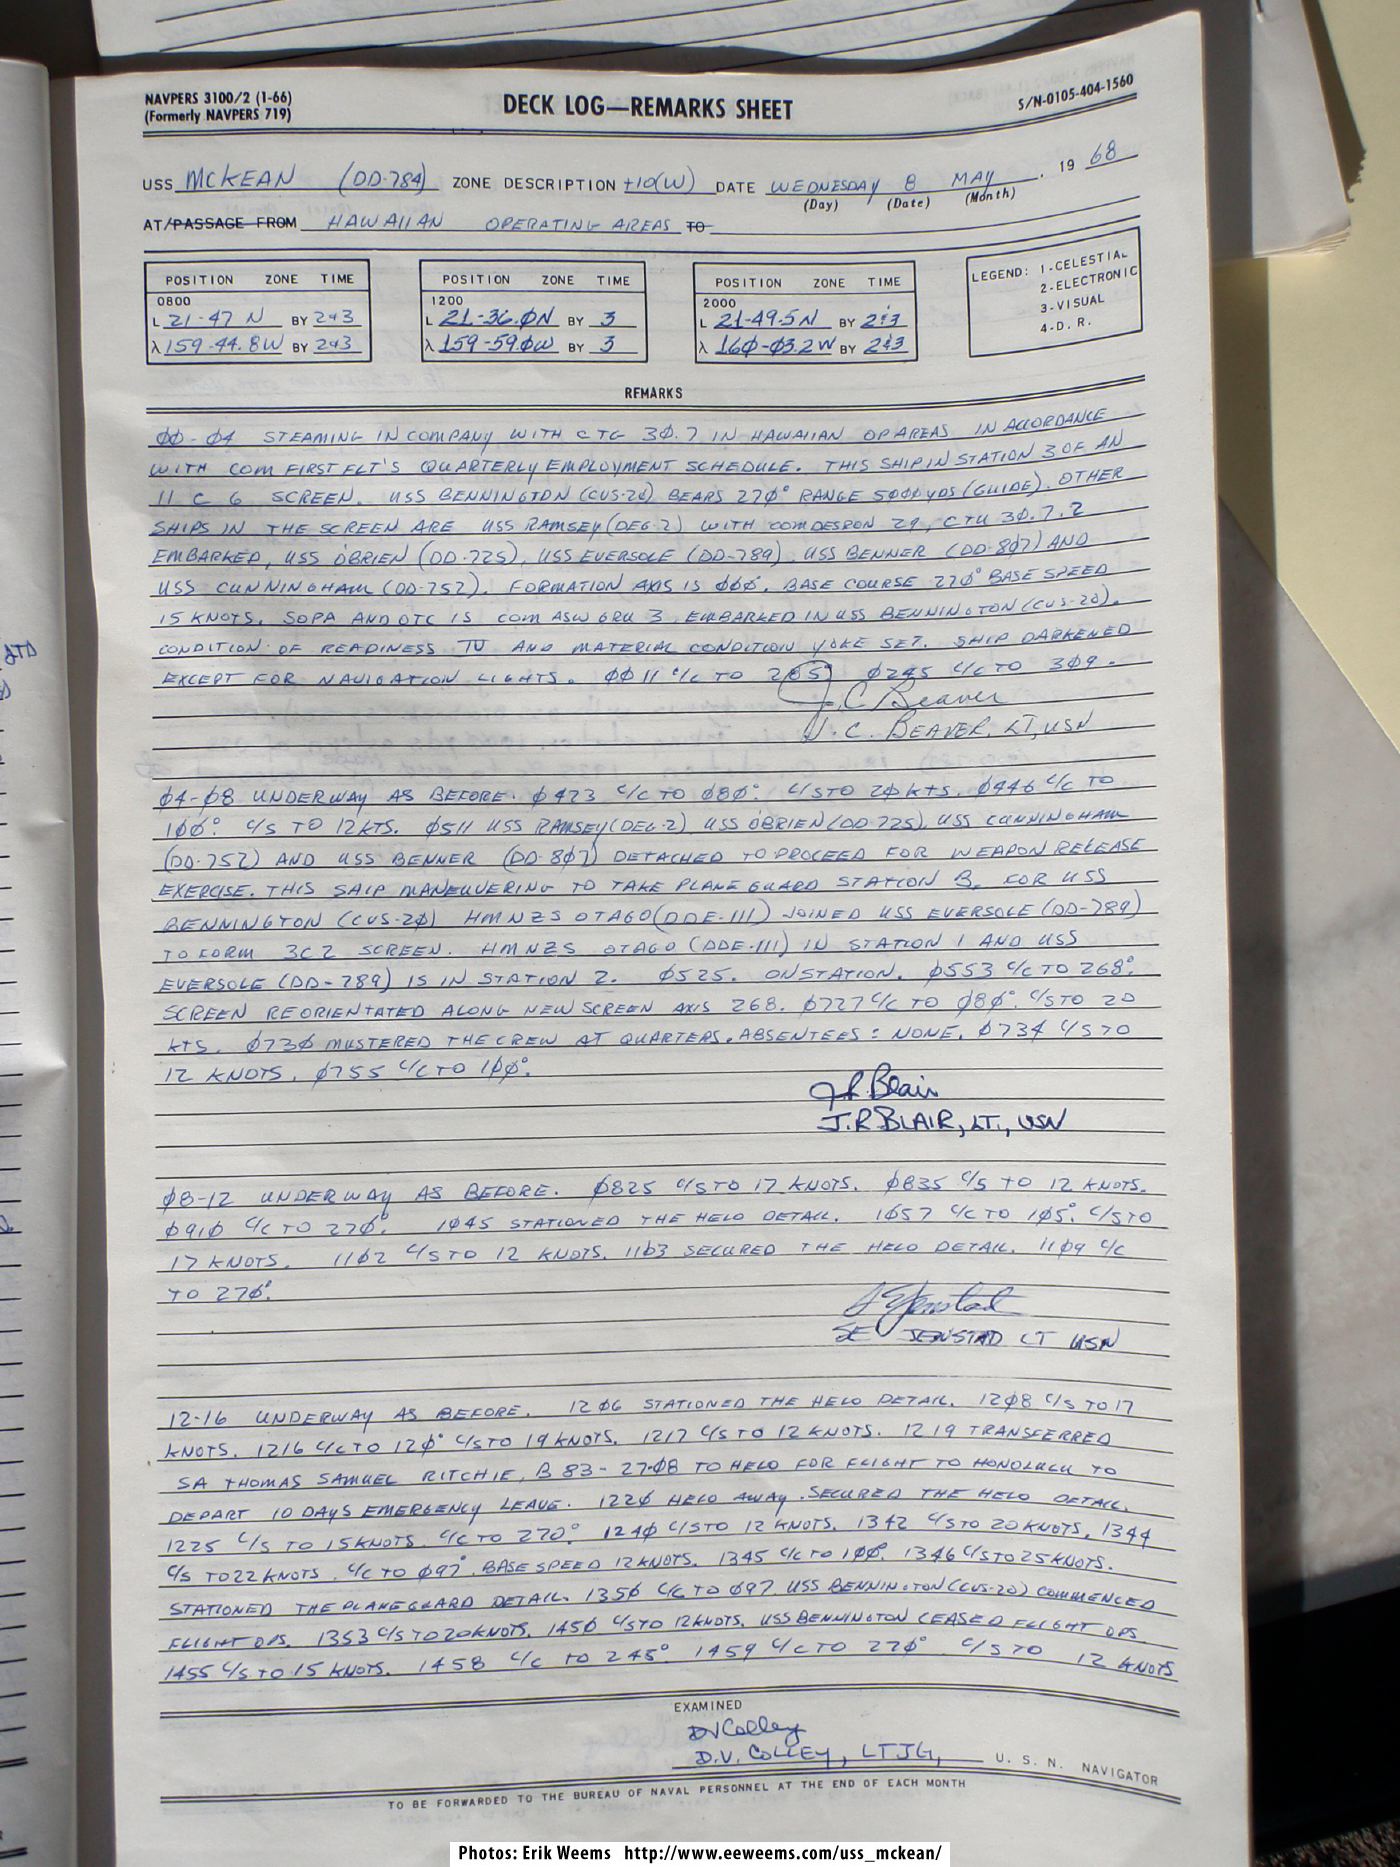 NAVPERS 3100/2 (1-66)
(Formerly NAVPERS 719)
DECK LOG—REMARKS SHEET
S/N-0105-404-1560
USS MCKEAN (DD-784) ZONE DESCRIPTION +10(W) DATE WEDNESDAY 8 MAY, 19 68
(Day) (Date) (Month)
AT/PASSAGE FROM HAWAIIAN OPERATING AREAS TO
POSITION ZONE TIME
0800
L 21-47 N BY 2+3
λ 159-44.8W BY 2+3
POSITION ZONE TIME
1200
L 21-36.ØN BY 3
λ 159-59.ØW BY 3
POSITION ZONE TIME
2000
L 21-49.5N BY 2&3
λ 16Ø-Ø3.2W BY 2&3
LEGEND: 1-CELESTIAL
2-ELECTRONIC
3-VISUAL
4-D. R.
REMARKS
ØØ-Ø4 STEAMING IN COMPANY WITH CTG 3Ø.7 IN HAWAIIAN OPAREAS IN ACCORDANCE
WITH COM FIRST FLT'S QUARTERLY EMPLOYMENT SCHEDULE. THIS SHIP IN STATION 3 OF AN
11 C 6 SCREEN. USS BENNINGTON (CVS-2Ø) BEARS 27Ø° RANGE 5ØØØ YDS (GUIDE). OTHER
SHIPS IN THE SCREEN ARE USS RAMSEY (DEG-2) WITH COMDESRON 29, CTU 3Ø.7.2
EMBARKED, USS O'BRIEN (DD-725), USS EVERSOLE (DD-789) USS BENNER (DD-8Ø7) AND
USS CUNNINGHAM (DD-752). FORMATION AXIS IS ØØØ. BASE COURSE 27Ø° BASE SPEED
15 KNOTS. SOPA AND OTC IS COM ASW GRU 3 EMBARKED IN USS BENNINGTON (CVS-2Ø).
CONDITION OF READINESS IV AND MATERIAL CONDITION YOKE SET. SHIP DARKENED
EXCEPT FOR NAVIGATION LIGHTS. ØØ11 C/C TO 285° Ø245 C/C TO 3Ø9.
J. C. Beaver
J. C. BEAVER, LT, USN
Ø4-Ø8 UNDERWAY AS BEFORE. Ø423 C/C TO Ø8Ø°. C/S TO 2Ø KTS. Ø446 C/C TO
1ØØ°. C/S TO 12 KTS. Ø511 USS RAMSEY (DEG-2) USS O'BRIEN (DD-725), USS CUNNINGHAM
(DD-752) AND USS BENNER (DD-8Ø7) DETACHED TO PROCEED FOR WEAPON RELEASE
EXERCISE. THIS SHIP MANEUVERING TO TAKE PLANE GUARD STATION B. FOR USS
BENNINGTON (CVS-2Ø) HMNZS OTAGO (DDE-111) JOINED USS EVERSOLE (DD-789)
TO FORM 3C2 SCREEN. HMNZS OTAGO (DDE-111) IN STATION 1 AND USS
EVERSOLE (DD-789) IS IN STATION 2. Ø525. ON STATION. Ø553 C/C TO 268°.
SCREEN REORIENTATED ALONG NEW SCREEN AXIS 268. Ø727 C/C TO Ø8Ø°. C/S TO 20
KTS. Ø73Ø MUSTERED THE CREW AT QUARTERS. ABSENTEES: NONE. Ø734 C/S TO
12 KNOTS. Ø755 C/C TO 1ØØ°.
J R Blair
J. R BLAIR, LT., USN
Ø8-12 UNDERWAY AS BEFORE. Ø825 C/S TO 17 KNOTS. Ø835 C/S TO 12 KNOTS.
Ø91Ø C/C TO 27Ø°. 1Ø45 STATIONED THE HELO DETAIL. 1Ø57 C/C TO 1Ø5°. C/S TO
17 KNOTS. 11Ø2 C/S TO 12 KNOTS. 11Ø3 SECURED THE HELO DETAIL. 11Ø9 C/C
TO 27Ø°.
S E Jenstad
SE JENSTAD LT USN
12-16 UNDERWAY AS BEFORE. 12Ø6 STATIONED THE HELO DETAIL. 12Ø8 C/S TO 17
KNOTS. 1216 C/C TO 12Ø° C/S TO 19 KNOTS. 1217 C/S TO 12 KNOTS. 1219 TRANSFERRED
SA THOMAS SAMUEL RITCHIE, B 83-27-Ø8 TO HELO FOR FLIGHT TO HONOLULU TO
DEPART 10 DAYS EMERGENCY LEAVE. 122Ø HELO AWAY. SECURED THE HELO DETAIL.
1225 C/S TO 15 KNOTS C/C TO 270°. 124Ø C/S TO 12 KNOTS. 1342 C/S TO 20 KNOTS. 1344
C/S TO 22 KNOTS. C/C TO Ø97°. BASE SPEED 12 KNOTS. 1345 C/C TO 1ØØ. 1346 C/S TO 25 KNOTS.
STATIONED THE PLANEGUARD DETAIL. 135Ø C/C TO Ø97 USS BENNINGTON (CVS-20) COMMENCED
FLIGHT OPS. 1353 C/S TO 20 KNOTS. 145Ø C/S TO 12 KNOTS. USS BENNINGTON CEASED FLIGHT OPS.
1455 C/S TO 15 KNOTS. 1458 C/C TO 245° 1459 C/C TO 27Ø° C/S TO 12 KNOTS
EXAMINED
D V Colley
D. V. COLLEY, LTJG, U. S. N. NAVIGATOR
TO BE FORWARDED TO THE BUREAU OF NAVAL PERSONNEL AT THE END OF EACH MONTH
Photos: Erik Weems http://www.eeweems.com/uss_mckean/